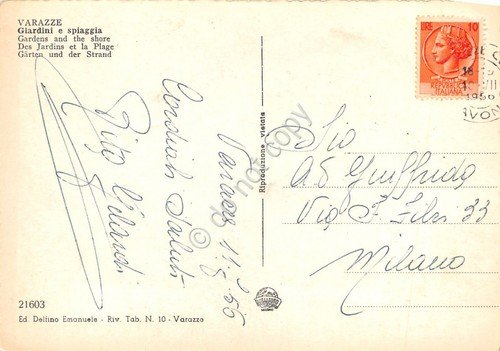 VARAZZE
Giardini e spiaggia
Gardens and the shore
Des Jardins et la Plage
Gärten und der Strand
Varazze 11.8.56
Cordiali Saluti
21603
Ed. Delfino Emanuele - Riv. Tab. N. 10 - Varazze
Riproduzione vietata
do not copy
LIRE 10
REPUBBLICA
ITALIANA
1956
Sig
Giuffrida
Via F. 33
Milano